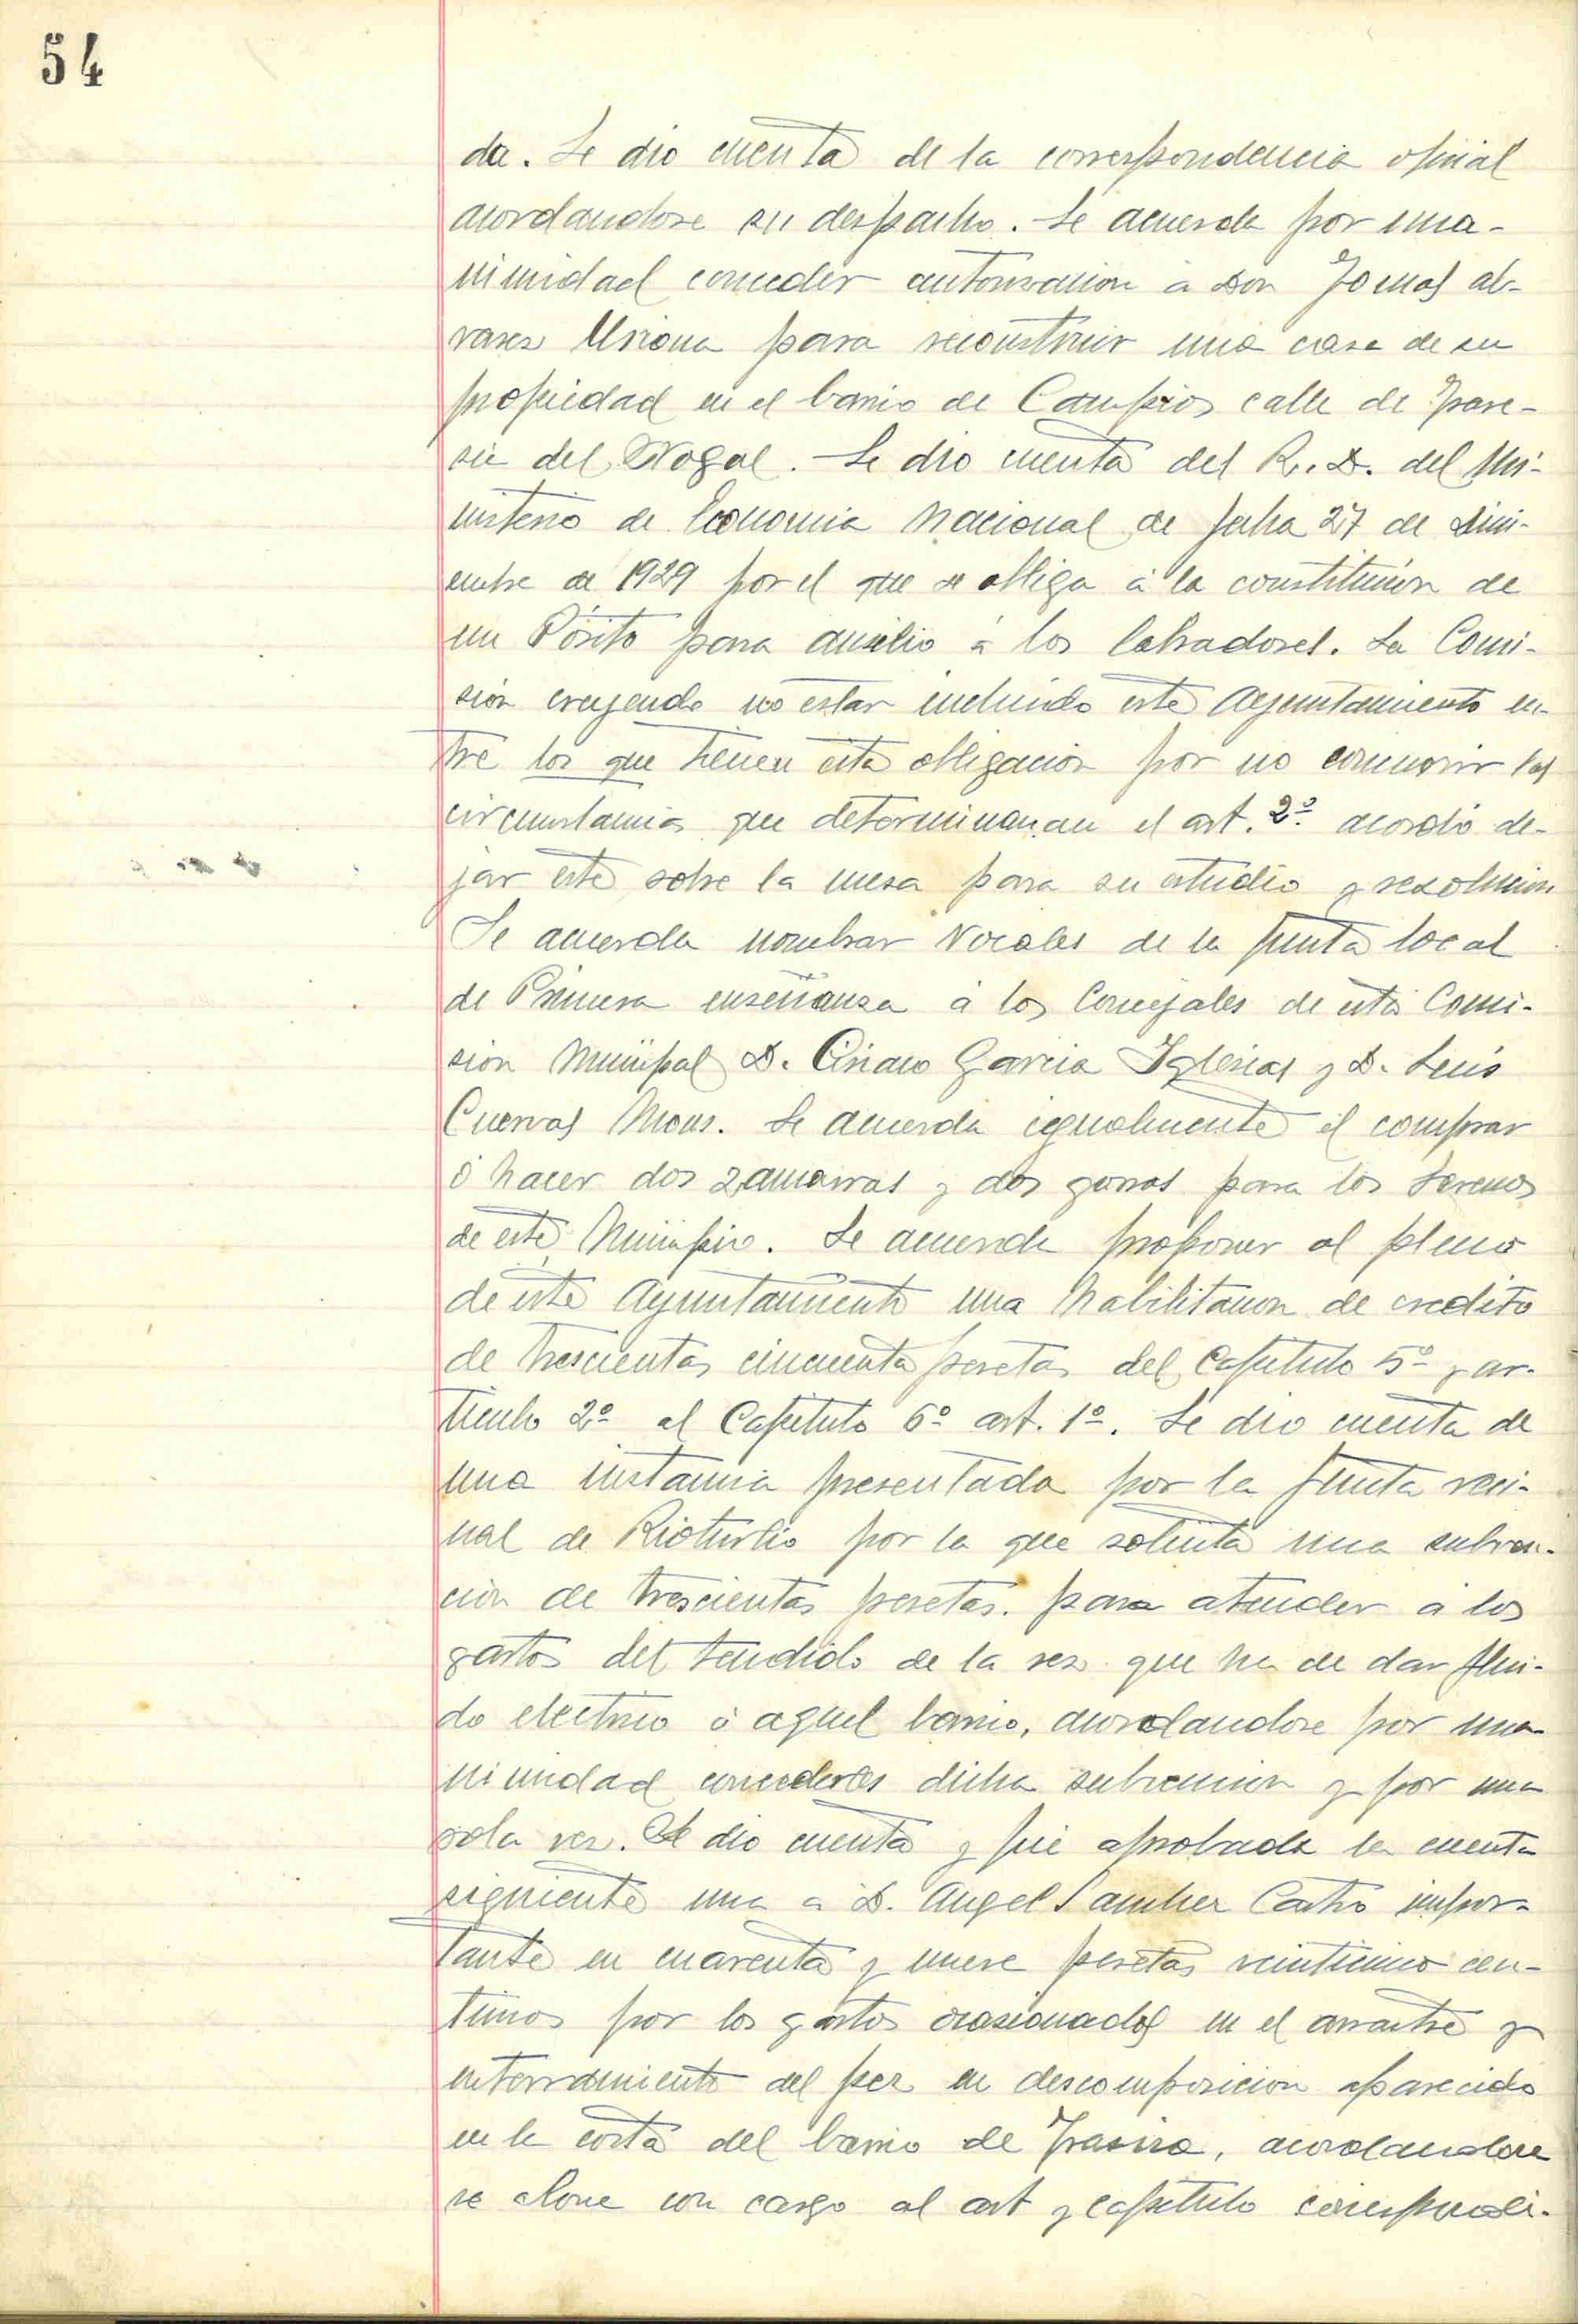 54
da. Se dio cuenta de la correspondencia oficial
acordandose su despacho. Se acuerda por una-
nimidad conceder autorizacion a Don Tomas Al-
varez para reconstruir una casa de su
propiedad en el barrio de Campios calle de
del Nogal. Se dio cuenta del R. D. del Mi-
nisterio de Economia Nacional de fecha 27 de Dici-
embre de 1929 por el que se obliga á la constitución de
un Pósito para auxilio á los labradores. La Comi-
sión creyendo no estar incluido este Ayuntamiento en-
tre los que tienen esta obligación por no concurrir las
circunstancias que el art. 2º acordó de-
jar este sobre la mesa para su estudio y resolucion
Se acuerda nombrar Vocales de la Junta local
de Primera enseñanza á los Concejales de esta Comi-
sion Municipal D. Ciriaco Garcia Iglesias y D. Luis
Cuevas Mons. Se acuerda igualmente el comprar
ó hacer dos zamarras y dos gorras para los Serenos
de este Municipio. Se acuerda proponer al pleno
de este Ayuntamiento una habilitacion de credito
de trescientas cincuenta pesetas del Capitulo 5º y ar-
ticulo 2º al Capitulo 6º art. 1º. Se dio cuenta de
una instancia presentada por la Junta veci-
nal de Rioturbio por la que solicita una subven-
ción de trescientas pesetas. para atender a los
gastos del tendido de la red que ha de dar flui-
do electrico á aquel barrio, acordandose por una-
nimidad concederles dicha subvencion y por una
sola vez. Se dio cuenta y fué aprobada la cuenta
siguiente una a D. Angel Sanchez Castro impor-
tante en cuarenta y nueve pesetas veinticinco cen-
timos por los gastos ocasionados en el arrastre y
enterramiento del pez en descomposicion aparecido
en la costa del barrio de, acordandose
se abone con cargo al art y capitulo correspondi-